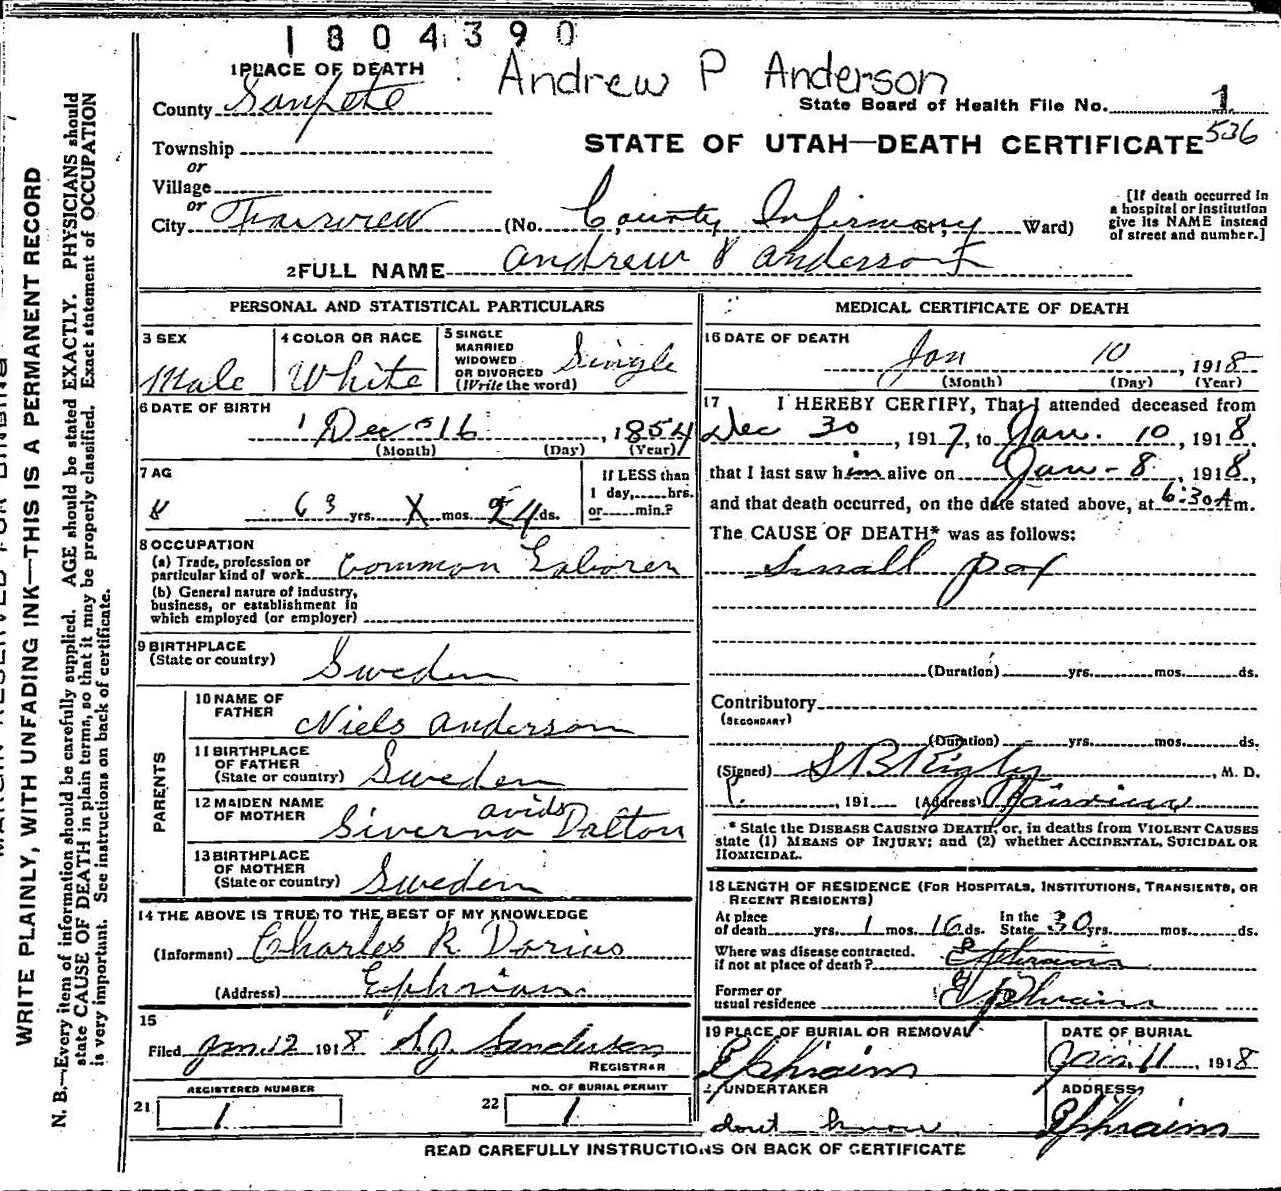 1804390
1 PLACE OF DEATH Andrew P Anderson
County Sanpete State Board of Health File No. 1
Township STATE OF UTAH—DEATH CERTIFICATE 536
or
Village
or
City Fairview (No. County Infirmary St., Ward)
[If death occurred in
a hospital or institution
give its NAME instead
of street and number.]
2 FULL NAME Andrew P Anderson
PERSONAL AND STATISTICAL PARTICULARS
3 SEX Male
4 COLOR OR RACE White
5 SINGLE
MARRIED
WIDOWED
OR DIVORCED
(Write the word) Single
6 DATE OF BIRTH
Dec 16, 1854
(Month) (Day) (Year)
7 AG
63 yrs. X mos. 24 ds.
If LESS than
1 day, hrs.
or min.?
8 OCCUPATION
(a) Trade, profession or
particular kind of work Common Laborer
(b) General nature of industry,
business, or establishment in
which employed (or employer)
9 BIRTHPLACE
(State or country) Sweden
PARENTS
10 NAME OF
FATHER Niels Anderson
11 BIRTHPLACE
OF FATHER
(State or country) Sweden
12 MAIDEN NAME
OF MOTHER Siverna Dalton
13 BIRTHPLACE
OF MOTHER
(State or country) Sweden
14 THE ABOVE IS TRUE TO THE BEST OF MY KNOWLEDGE
(Informant) Charles R Dorius
(Address) Ephriam
15
Filed Jan. 12 1918 S.J. Sanderson
REGISTRAR
REGISTERED NUMBER
21 1
NO. OF BURIAL PERMIT
22 1
MEDICAL CERTIFICATE OF DEATH
16 DATE OF DEATH
Jan 10, 1918
(Month) (Day) (Year)
17 I HEREBY CERTIFY, That I attended deceased from
Dec 30, 1917, to Jan. 10, 1918,
that I last saw him alive on Jan - 8, 1918,
and that death occurred, on the date stated above, at 6:30 A m.
The CAUSE OF DEATH* was as follows:
Small pox
(Duration) yrs. mos. ds.
Contributory
(SECONDARY)
(Duration) yrs. mos. ds.
(Signed) S B Rigby, M. D.
, 191 (Address) Fairview
* State the DISEASE CAUSING DEATH, or, in deaths from VIOLENT CAUSES
state (1) MEANS OF INJURY; and (2) whether ACCIDENTAL, SUICIDAL OR
HOMICIDAL.
18 LENGTH OF RESIDENCE (FOR HOSPITALS, INSTITUTIONS, TRANSIENTS, OR
RECENT RESIDENTS)
At place
of death yrs. 1 mos. 16 ds. In the
State 30 yrs. mos. ds.
Where was disease contracted.
if not at place of death? Ephraim
Former or
usual residence Ephraim
19 PLACE OF BURIAL OR REMOVAL
Ephraim
DATE OF BURIAL
Jan. 11, 1918
UNDERTAKER
dont know
ADDRESS
Ephraim
READ CAREFULLY INSTRUCTIONS ON BACK OF CERTIFICATE
WRITE PLAINLY, WITH UNFADING INK—THIS IS A PERMANENT RECORD
N. B.—Every item of information should be carefully supplied. AGE should be stated EXACTLY. PHYSICIANS should
state CAUSE OF DEATH in plain terms, so that it may be properly classified. Exact statement of OCCUPATION
is very important. See instructions on back of certificate.